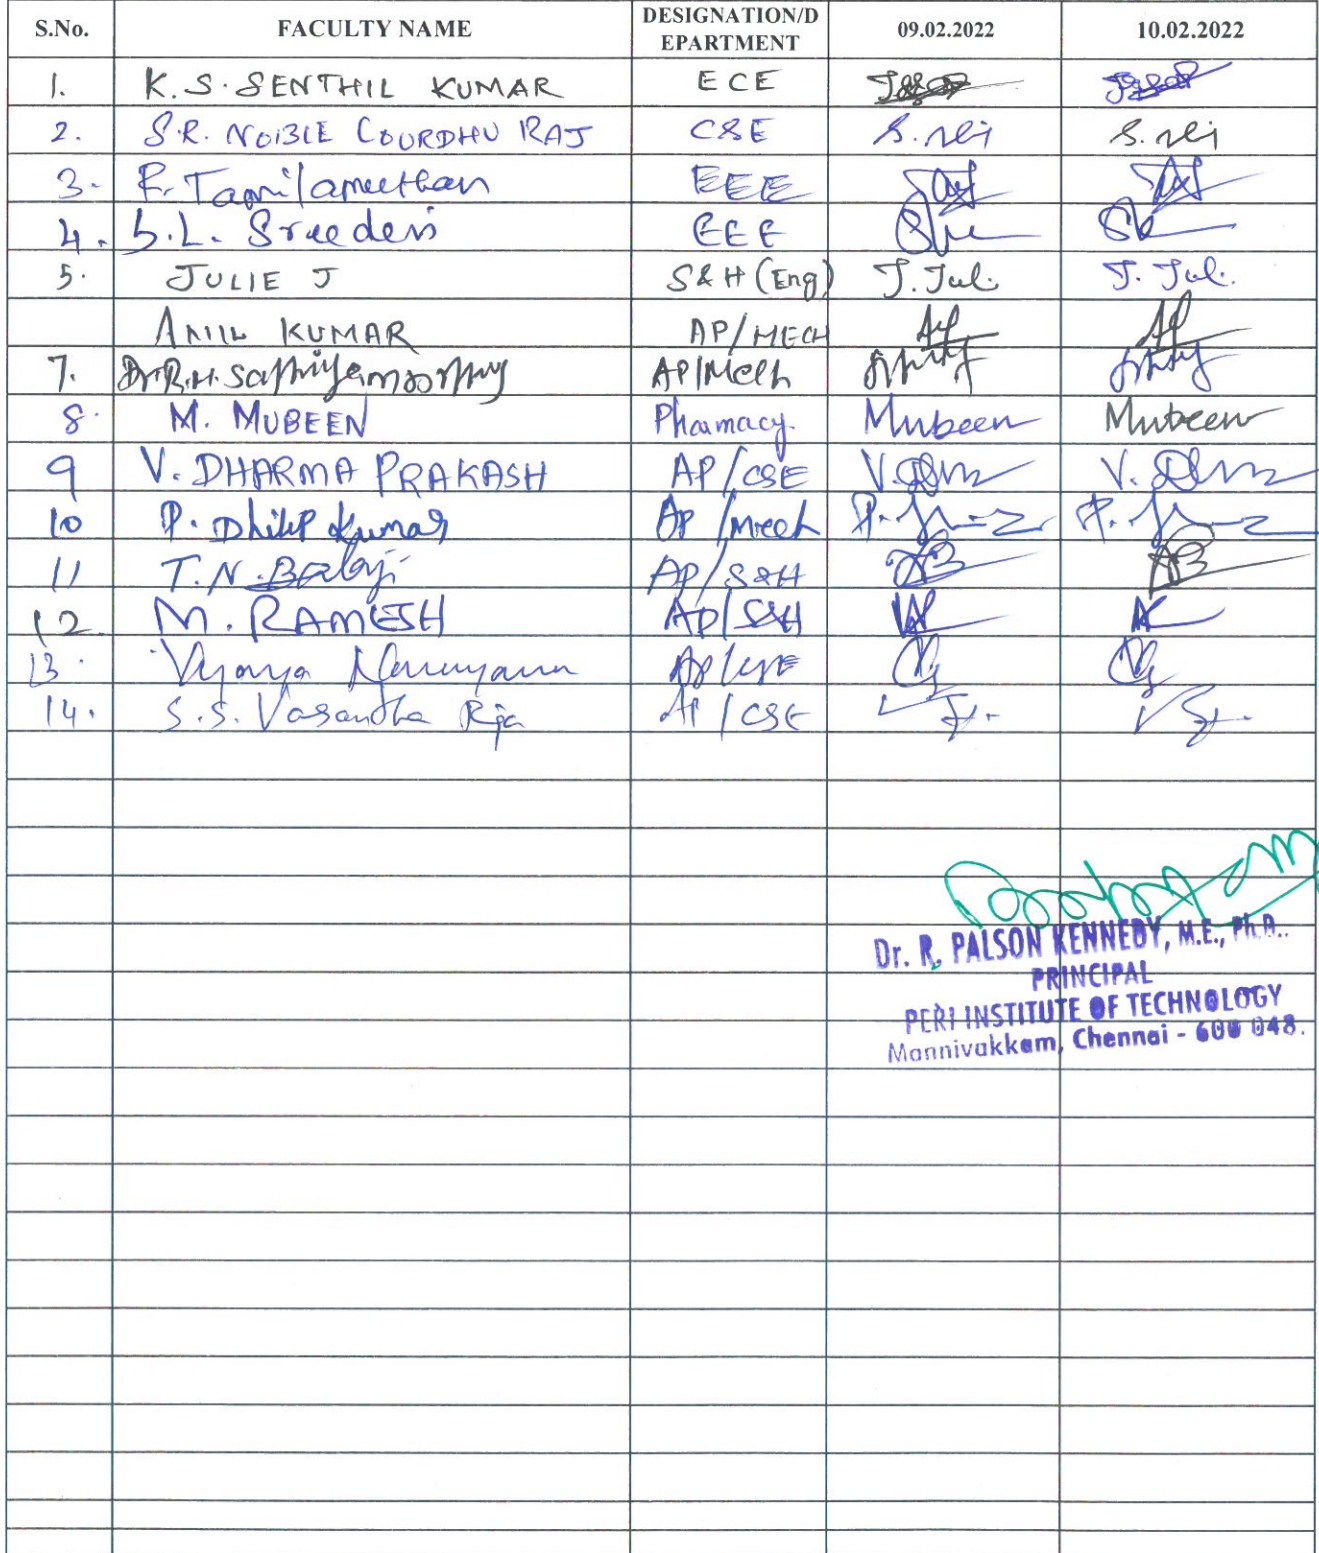 S.No. FACULTY NAME DESIGNATION/D EPARTMENT 09.02.2022 10.02.2022
1. K.S. SENTHIL KUMAR ECE
2. S.R. NOIBLE COURDHU RAJ CSE
3. Tamilameethan EEE
4. S.L. Sreedevi EEE
5. JULIE J S&H (Eng) J. Juli. J. Juli.
ANIL KUMAR AP/MECH
7. Dr.R.H. Sathiyamoorthy AP/Mech
8. M. MUBEEN Pharmacy. Mubeen Mubeen
9 V. DHARMA PRAKASH AP/CSE
10 P. Dhilip Kumar AP/Mech
11 T.N. Balaji AP/S&H
12. M. RAMESH AP/S&H
13. Narayana
14. S.S. Vasandha Raja AP/CSE
Dr. R. PALSON KENNEDY, M.E., Ph.D..
PRINCIPAL
PERI INSTITUTE OF TECHNOLOGY
Mannivakkam, Chennai - 600 048.